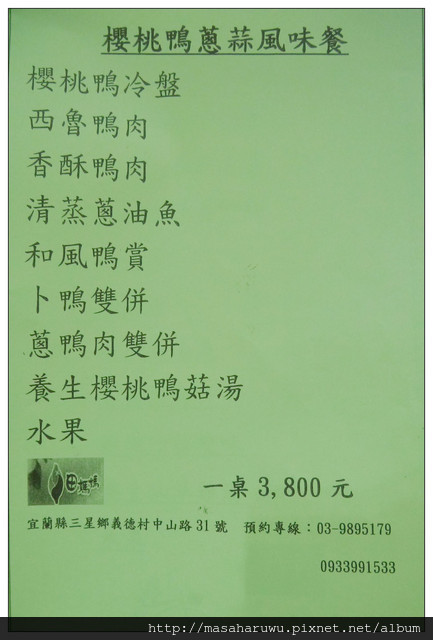 櫻桃鴨蔥蒜風味餐
櫻桃鴨冷盤
西魯鴨肉
香酥鴨肉
清蒸蔥油魚
和風鴨賞
卜鴨雙併
蔥鴨肉雙併
養生櫻桃鴨菇湯
水果
一桌 3,800 元
宜蘭縣三星鄉義德村中山路 31 號 預約專線：03-9895179
0933991533
http://masaharuwu.pixnet.net/album